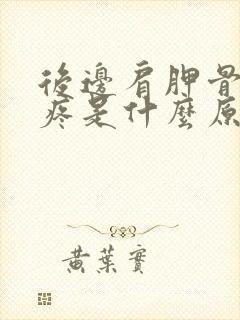 後邊肩胛骨
疼是什麼原
黃葉實